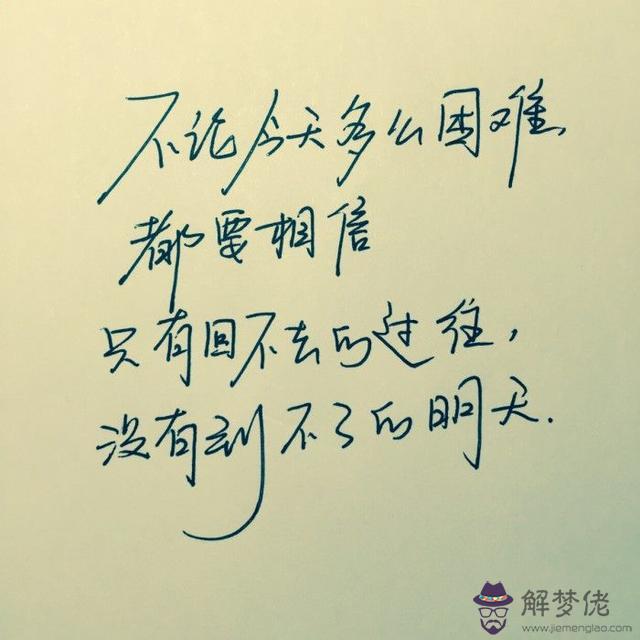 不论今天多么困难、
都要相信
只有回不去的过往，
没有到不了的明天.
解梦佬
www.jiemenglao.com